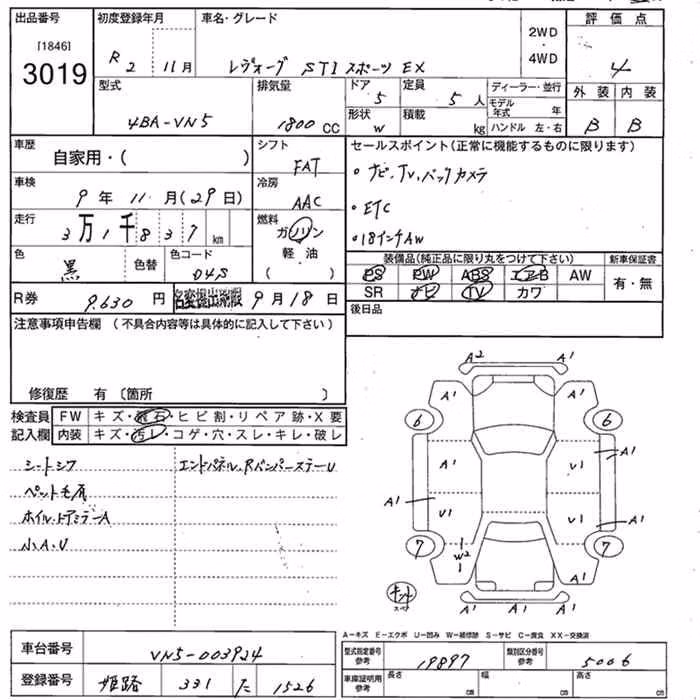 出品番号 初度登録年月 車名・グレード 評価点
[1846]
3019
R2 11月 レヴォーグ STI スポーツ EX 2WD・4WD 4
型式 排気量 ドア 5 定員 5人 ディーラー・並行 外装 内装
4BA-VN5 1800 CC 形状 W 積載 kg モデル年式 年 B B
ハンドル 左・右
車歴 シフト セールスポイント(正常に機能するものに限ります)
自家用・( ) FAT ・ナビ,TV,バックカメラ
車検 冷房
9年11月(29日) AAC ・ETC
走行 燃料
3万1千837km ガソリン ・18インチAW
色 色替 色コード 軽油
黒 04S ( )
装備品(純正品に限り丸をつけて下さい) 新車保証書
PS PW ABS エアB AW 有・無
SR ナビ TV カワ
R券 9,630円 名変提出期限 9月18日
後日品
注意事項申告欄 (不具合内容等は具体的に記入して下さい)
修復歴 有 〔箇所 〕
検査員 FW キズ・飛石・ヒビ割・リペア跡・X要
記入欄 内装 キズ・汚レ・コゲ・穴・スレ・キレ・破レ
シートシワ エンドパネル、RバンパーステーU
ペット毛有
ホイル・ドアミラーA
小A・U
A2 A1
A1 A1
6 6
A1 V1 A1
A1 V1 V1 A1
7 W2 7
A1
A1 A1 A1
キット
スペア
A-キズ E-エクボ U-凹み W-補修跡 S-サビ C-腐食 XX-交換済
車台番号 VN5-003924
型式指定番号 参考 19897 類別区分番号 参考 5006
登録番号 姫路 331 た 1526
車庫証明用 参考 長さ cm 幅 cm 高さ cm